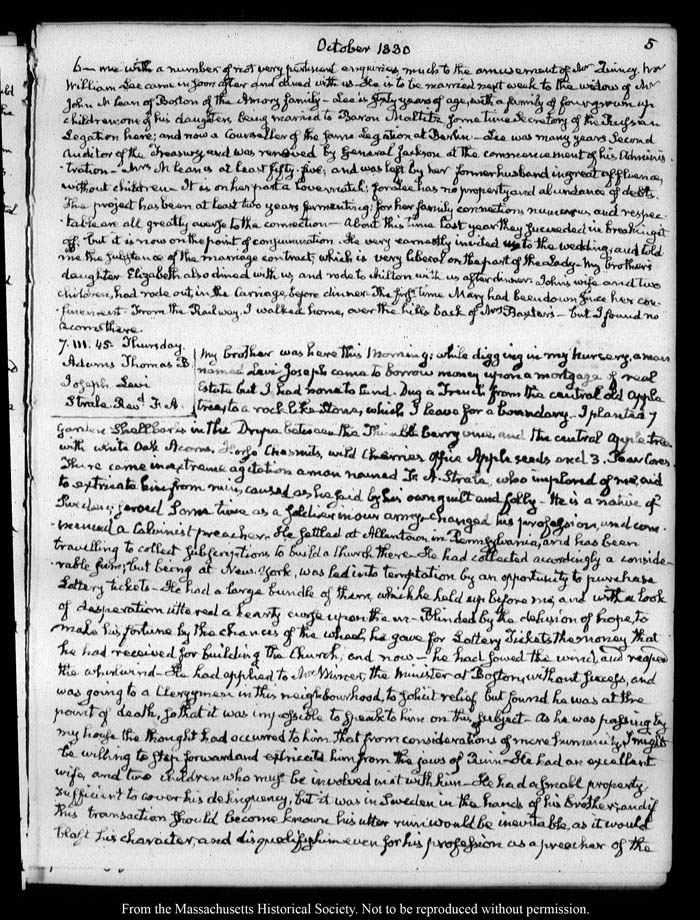 October 1830
5
6— me with a number of not very pertinent enquiries, much to the amusement of Mr Quincy. Mr
William Lee came in soon after and dined with us. He is to be married next week to the widow of Mr
John McLean of Boston of the Amory family— Lee is sixty years of age, with a family of four grown up
children; one of his daughters being married to Baron Maltitz some time Secretary of the Prussian
Legation here; and now a Counsellor of the same Legation at Berlin— Lee was many years Second
Auditor of the Treasury and was removed by General Jackson at the commencement of his Adminis
tration— Mrs McLean is at least fifty-five; and was left by her former husband in great affluence,
without children— It is on her part a love match; for Lee has no property and abundance of debts.
The project has been at least two years fermenting; for her family connections numerous and respec
table are all greatly averse to the connection— About this time last year they succeeded in breaking it
off; but it is now on the point of consummation. He very earnestly invited us to the wedding; and told
me the substance of the marriage contract, which is very liberal on the part of the Lady— My brother's
daughter Elizabeth also dined with us, and rode to Milton with us after dinner. John's wife and two
children, had rode out, in the Carriage, before dinner— The first time Mary had been down since her con
finement— From the Railway, I walked home, over the hills back of Mrs Baxter's— but I found no
acorns there.
7. III. 45. Thursday.
Adams Thomas B.
Joseph Levi
Strale Revd F. A.
My brother was here this Morning; while digging in my nursery, a man
named Levi Joseph came to borrow money upon a mortgage of real
Estate but I had none to lend. Dug a Trench from the central old apple
tree, to a rock like Stone, which I leave for a boundary. I planted 7
Garden Shellbarks in the Drupe between the Thimble berry vine, and the central Apple tree
with White Oak Acorns, Horse Chesnuts, wild Cherries, Office Apple seeds and 3. Pear Cores.
There came in extreme agitation a man named F. A. Strale, who implored of me, aid
to extricate him from ruin, caused as he said by his own guilt and folly— He is a native of
Sweden; served some time as a soldier in our army— changed his profession, and com
menced a Calvinist preacher. He settled at Allentown in Pennsylvania, and has been
travelling to collect subscriptions to build a Church there— He had collected accordingly a conside
rable sum; but being at New-York, was led into temptation by an opportunity to purchase
Lottery tickets— He had a large bundle of them, which he held up before me, and with a look
of desperation uttered a hearty curse upon them— Blinded by the delusion of hope, to
make his fortune by the chances of the wheel, he gave for Lottery Tickets the money that
he had received for building the Church; and now— he had sowed the wind, and reaped
the whirlwind— He had applied to Mr Wisner, the Minister at Boston, without success, and
was going to a Clergyman in this neighbourhood, to solicit relief but found he was at the
point of death, so that it was impossible to speak to him on this subject— As he was passing by
my house the thought had occurred to him that from considerations of mere humanity, I might
be willing to step forward and extricate him from the jaws of Ruin— He had an excellent
wife, and two children who must be involved in it with him— He had a small property
sufficient to cover his delinquency, but it was in Sweden in the hands of his brother; and if
this transaction should become known his utter ruin would be inevitable, as it would
blast his character, and disqualify him even for his profession as a preacher of the
From the Massachusetts Historical Society. Not to be reproduced without permission.